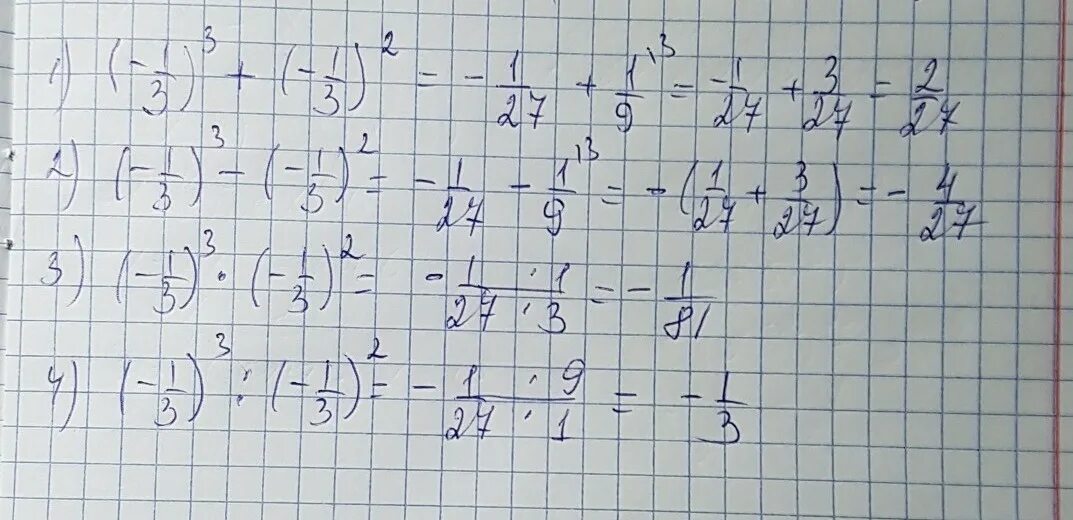 1) (-1/3)³ + (-1/3)² = -1/27 + 1\³/9 = -1/27 + 3/27 = 2/27
2) (-1/3)³ - (-1/3)² = -1/27 - 1\³/9 = -(1/27 + 3/27) = -4/27
3) (-1/3)³ · (-1/3)² = -(1 · 1)/(27 · 3) = -1/81
4) (-1/3)³ : (-1/3)² = -(1 · 9)/(27 · 1) = -1/3